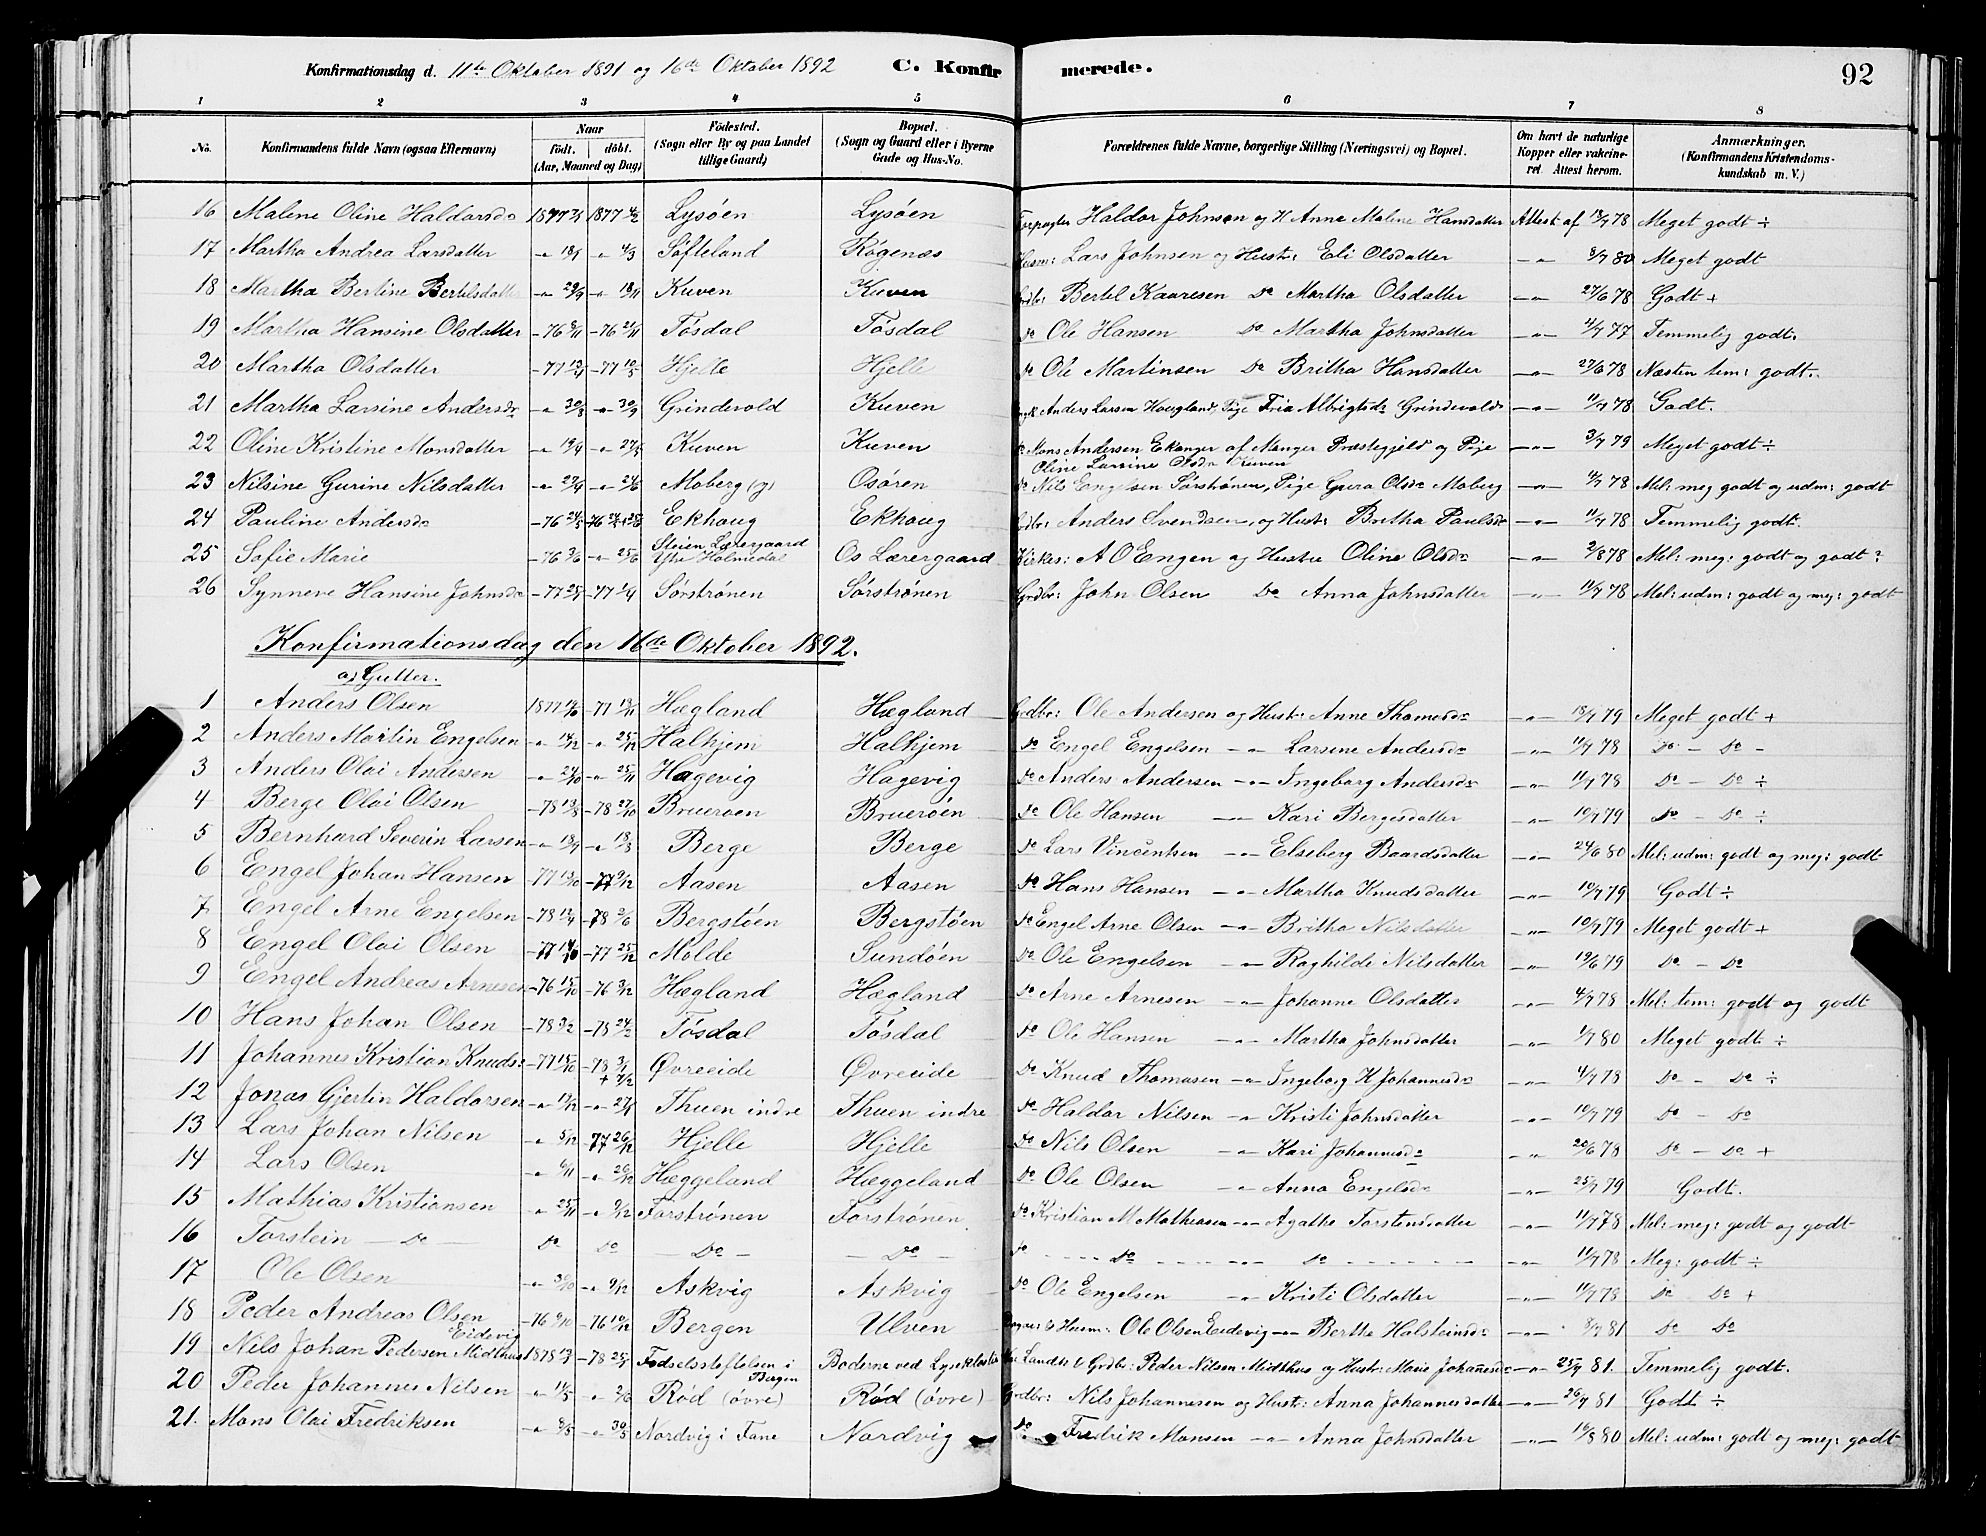 Konfirmationsdag d. 11te Oktober 1891 og 16de Oktober 1892 C. Konfirmerede. 92
1 2 3 4 5 6 7 8
No. Konfirmandens fulde Navn (ogsaa Efternavn) Naar født. døbt. (Aar, Maaned og Dag) Fødested. (Sogn eller By og paa Landet tillige Gaard) Bopæl. (Sogn og Gaard eller i Byerne Gade og Hus-No. Forældrenes fulde Navne, borgerlige Stilling (Næringsvei) og Bopæl. Om havt de naturlige Kopper eller vakcineret Attest herom. Anmærkninger. (Konfirmandens Kristendomskundskab m. V.)
16 Malene Oline Haldorsdr 1877 1877 4/2 Lysøen Lysøen Forpagter Haldor Johnsen og H. Anna Malene Hansdatter Attest af 13/7 78 Meget godt ÷
17 Martha Andrea Larsdatter -"- 18/1 -"- 4/3 Søfteland Røgenæs Husm: Lars Johnsen og Hust: Eli Olsdatter -"- 8/7 80 Meget godt
18 Martha Bertine Bertelsdatter -"- 29/9 -"- 18/11 Kuven Kuven Grdbr: Bertel Kaaresen Do Martha Olsdatter -"- 27/6 78 Godt +
19 Martha Hansine Olsdatter -76 8/11 -76 Tøsdal Tøsdal Do Ole Hansen Do Martha Johnsdatter -"- 4/7 77 Temmelig godt.
20 Martha Olsdatter -77 13/4 -77 10/5 Hjelle Hjelle Do Ole Martinsen Do Britha Hansdatter -"- 27/6 78 Næsten tem: godt.
21 Martha Larsine Andersdr -"- 30/8 -"- 30/9 Grindevold Kuven Anders Larsen Haugland, Pige Albrigtsdr Grindevold -"- 11/7 78 Godt.
22 Oline Kristine Monsdatter -"- 19/4 -"- 27/5 Kuven Kuven Mons Andersen Ekanger af Manger Præstegjeld og Pige -"- 3/7 79 Meget godt ÷
Oline Larsine Olsdr Kuven
23 Nilsine Gurine Nilsdatter -"- 27/4 -"- 24/6 Moberg (y) Osøren Do Nils Engelsen Sørstrønen, Pige Gura Olsdr Moberg -"- 11/7 78 Mel: meg godt og udm: godt
24 Pauline Andersdr -76 24/5 -76 Ekhaug Ekhaug Grdbr: Anders Svendsen, og Hust: Britha Paulsdr -"- 11/7 78 Temmelig godt.
25 Sofie Marie -76 3/6 -"- 25/6 Steien Lærergaard Ytre Holmedal Os Lærergaard Kirkes: A O Engen og Hustru Oline Olsdr -"- 2/8 78 Mel: meg: godt og godt
26 Synneve Hansine Johnsdr -77 -77 1/4 Sørstrønen Sørstrønen Grdbr: John Olsen Do Anna Johnsdatter -"- 11/7 78 Mel: udm: godt og meg: godt
Konfirmationsdag den 16de Oktober 1892.
a) Gutter.
1 Anders Olsen 1877 -77 18/11 Hægland Hægland Grdbr: Ole Andersen og Hust: Anne Thomasdr -"- 18/7 79 Meget godt +
2 Anders Martin Engelsen -"- 14/12 -"- 25/12 Halhjem Halhjem Do Engel Engelsen -"- Larsine Andersdr -"- 11/7 78 Do - Do -
3 Anders Olai Andersen -"- 24/10 -"- 25/11 Hagevig Hagevig Do Anders Andersen -"- Ingeborg Andersdr -"- 11/7 78 Do - Do ÷
4 Berge Olai Olsen -78 13/8 -78 27/10 Bruerøen Bruerøen Do Ole Hansen -"- Kari Bergesdatter -"- 10/7 79 Do - Do ÷
5 Bernhard Severin Larsen -"- 13/7 -"- 18/8 Berge Berge Do Lars Vincentsen -"- Elseberg Baardsdatter -"- 24/6 80 Mel: udm: godt og meg: godt
6 Engel Johan Hansen -77 13/10 -77 9/12 Aasen Aasen Do Hans Hansen -"- Martha Knudsdatter -"- 10/7 79 Godt ÷
7 Engel Arne Engelsen -78 -78 2/6 Bergstøen Bergstøen Do Engel Arne Olsen -"- Britha Nilsdatter -"- 10/7 79 Meget godt +
8 Engel Olai Olsen -77 14/10 -77 25/12 Molde Sundøen Do Ole Engelsen -"- Raghilde Nilsdatter -"- 19/6 79 Do - Do
9 Engel Andreas Arnesen -76 15/10 -76 3/12 Hægland Hægland Do Arne Arnesen -"- Johanne Olsdatter -"- 4/7 78 Mel: tem: godt og godt
10 Hans Johan Olsen -78 3/2 -78 24/2 Tøsdal Tøsdal Do Ole Hansen -"- Martha Johnsdatter -"- 1/7 80 Meget godt ÷
11 Johannes Kristian Knuds: -77 15/10 -78 3/1 + 9/12 Øvreeide Øvreeide Do Knud Thomasen -"- Ingeborg K Johannesdr -"- 4/7 78 Do - Do ÷
12 Jonas Gjertin Haldorsen -"- 19/12 -"- 27/1 Thuen indre Thuen indre Do Haldor Nilsen -"- Kristi Johnsdatter -"- 10/7 79 Do - Do
13 Lars Johan Nilsen -"- 5/12 -77 26/12 Hjelle Hjelle Do Nils Olsen -"- Kari Johannesdr -"- 20/6 78 Do - Do +
14 Lars Olsen -"- 6/11 -"- 26/12 Hæggeland Hæggeland Do Ole Olsen -"- Anna Engelsdr -"- 25/7 79 Godt.
15 Mathias Kristiansen -"- 25/11 -"- 9/12 Førstrønen Førstrønen Do Kristian M Mathiasen -"- Agathe Torstensdatter -"- 11/7 78 Mel: meg: godt og godt
16 Torstein - Do - Do Do - Do - - Do - Do - Do - Do - -"- 11/7 78 Meg: godt ÷
17 Ole Olsen -"- -"- 9/12 Askvig Askvig Do Ole Engelsen -"- Kristi Olsdatter -"- 11/7 78 Do Do +
18 Peder Andreas Olsen Eidevig -76 9/10 -76 10/12 Bergen Ulven Husm: Ole Olsen Eidevig -"- Berthe Halsteinsdr -"- 8/7 81 Do Do
19 Nils Johan Pedersen Midthus 1878 13/7 -78 25/7 Fødselsstiftelsen i Bergen Boderne ved Lysekloster Landh & Grdbr: Peder Nilsen Midthus og Hust: Marie Johannesdr -"- 25/7 81. Temmelig godt.
20 Peder Johannes Nilsen -"- 11/5 -"- 2/6 Rød (øvre) Rød (øvre) Grdbr: Nils Johannesen og Hust: Anna Johannesdatter -"- 26/7 81 Godt ÷
21. Mons Olai Fredriksen -"- 8/5 -"- 30/5 Nordvig i Fane Nordvig Do Fredrik Monsen -"- Anna Johnsdatter -"- 16/8 80 Mel: udm: godt og meg: godt